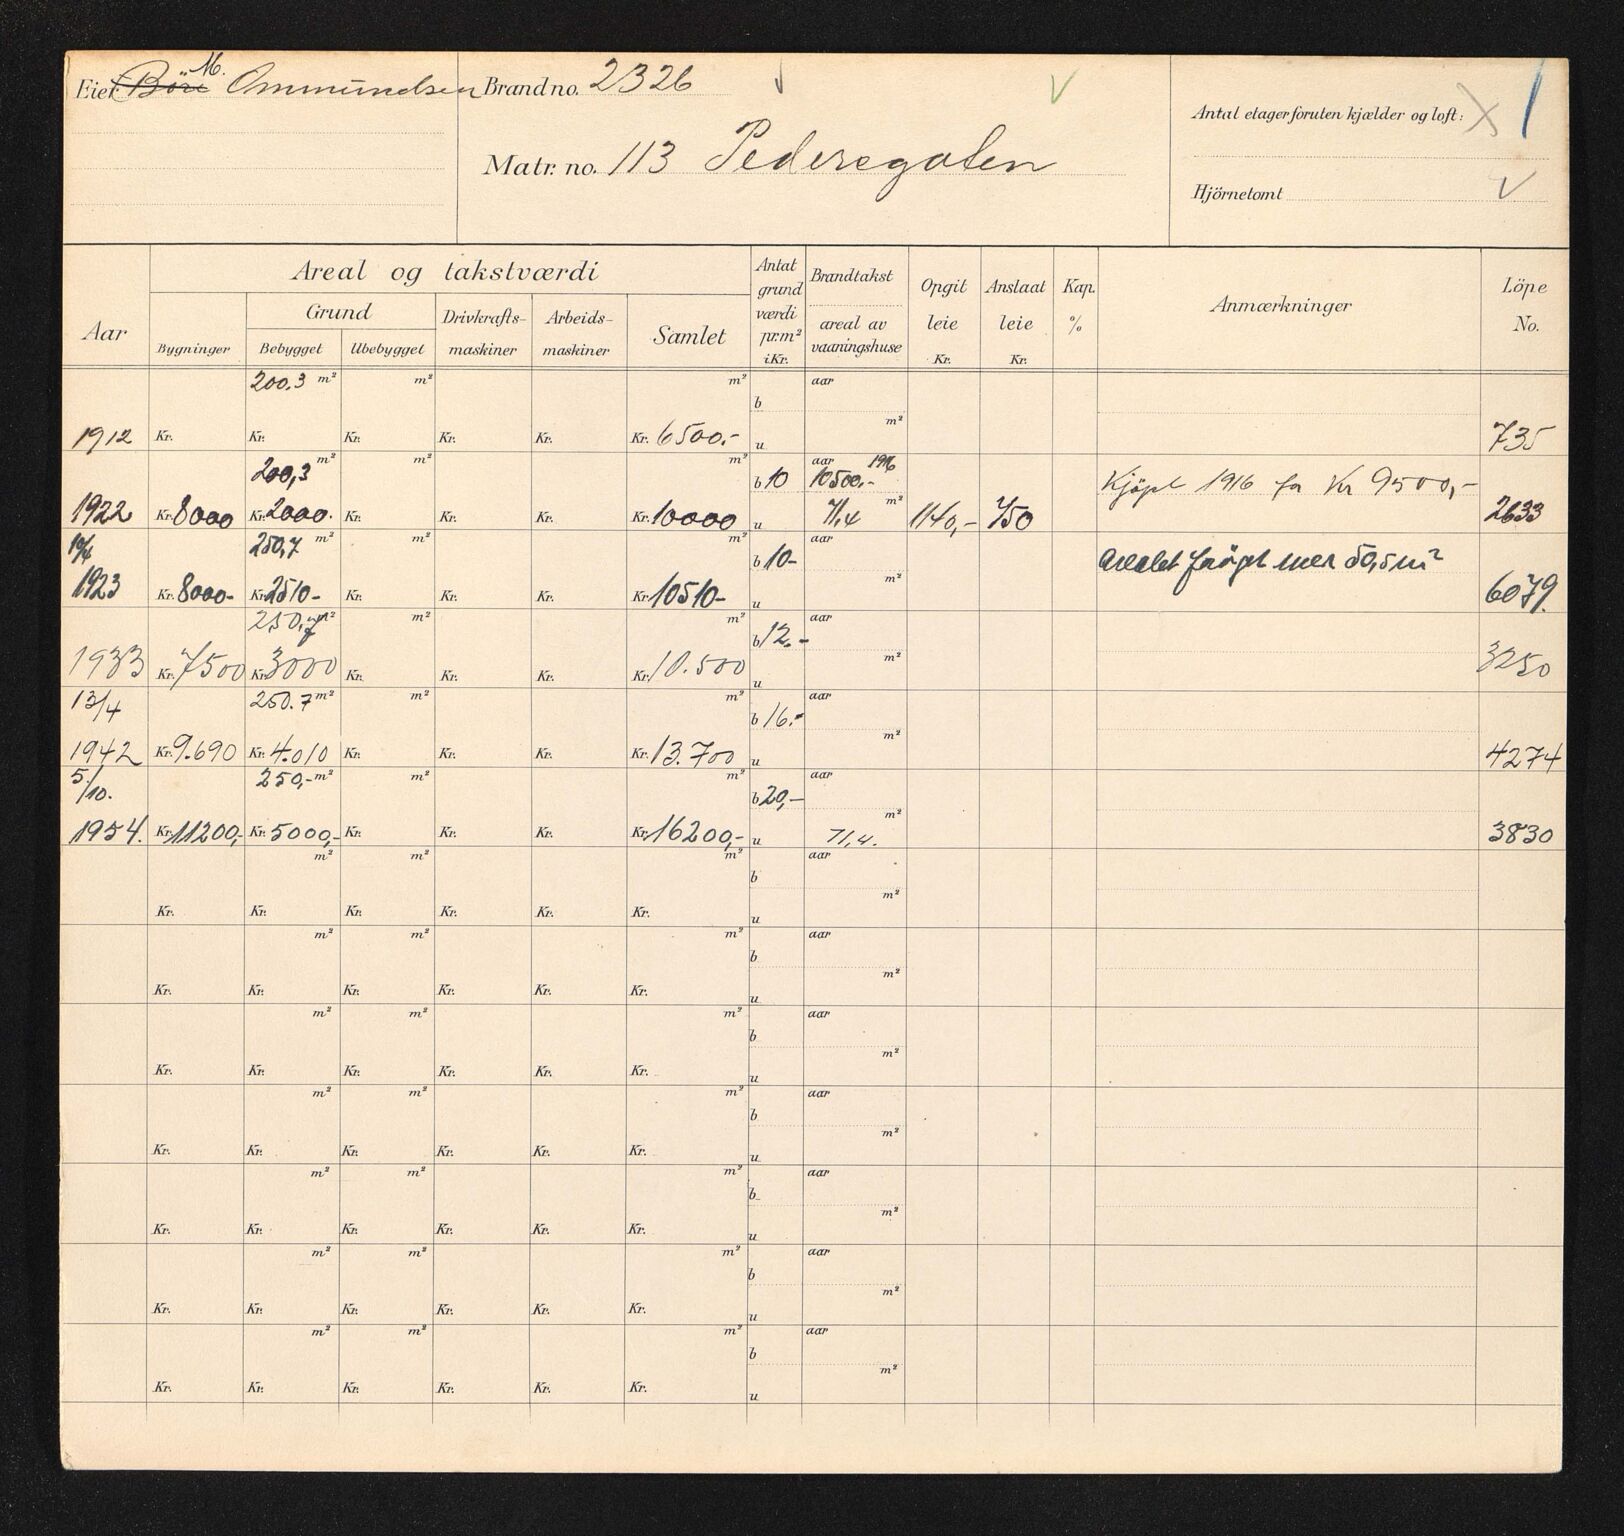 Eier Böre M. Ommundsen
Brand no. 2326
Matr. no. 113 Pedersgaten
Antal etager foruten kjælder og loft: 1
Hjörnetomt
Aar
Areal og takstværdi
Grund
Bygninger Bebygget Ubebygget
Drivkrafts-maskiner
Arbeids-maskiner
Samlet
Antat grund værdi pr. m² i Kr.
Brandtakst
areal av vaaningshuse
Opgit leie Kr.
Anslaat leie Kr.
Kap. %
Anmærkninger
Löpe No.
200.3 m² m² m² b aar
1912 Kr. Kr. Kr. Kr. Kr. Kr. 6500.- u m² 735
200,3 m² m² m² b 10 aar 1916 10500.- Kjøpt 1916 for Kr 9500,-
1922 Kr. 8000 Kr. 2000. Kr. Kr. Kr. Kr. 10000 u 71,4 m² 1140,- 750 2633
10/4 250,7 m² m² m² b 10- aar Arealet forøget med 50,5 m²
1923 Kr. 8000- Kr. 2510- Kr. Kr. Kr. Kr. 10510- u m² 6079.
250.7 m² m² m² b 12.- aar
1933 Kr. 7500 Kr. 3000 Kr. Kr. Kr. Kr. 10.500 u m² 3250
13/4 250.7 m² m² m² b 16.- aar
1942 Kr. 9.690 Kr. 4.010 Kr. Kr. Kr. Kr. 13.700 u m² 4274
5/10. 250,- m² m² m² b 20,- aar
1954. Kr. 11200,- Kr. 5000,- Kr. Kr. Kr. Kr. 16200,- u 71,4. m² 3830
m² m² m² b aar
Kr. Kr. Kr. Kr. Kr. Kr. u m²
m² m² m² b aar
Kr. Kr. Kr. Kr. Kr. Kr. u m²
m² m² m² b aar
Kr. Kr. Kr. Kr. Kr. Kr. u m²
m² m² m² b aar
Kr. Kr. Kr. Kr. Kr. Kr. u m²
m² m² m² b aar
Kr. Kr. Kr. Kr. Kr. Kr. u m²
m² m² m² b aar
Kr. Kr. Kr. Kr. Kr. Kr. u m²
m² m² m² b aar
Kr. Kr. Kr. Kr. Kr. Kr. u m²